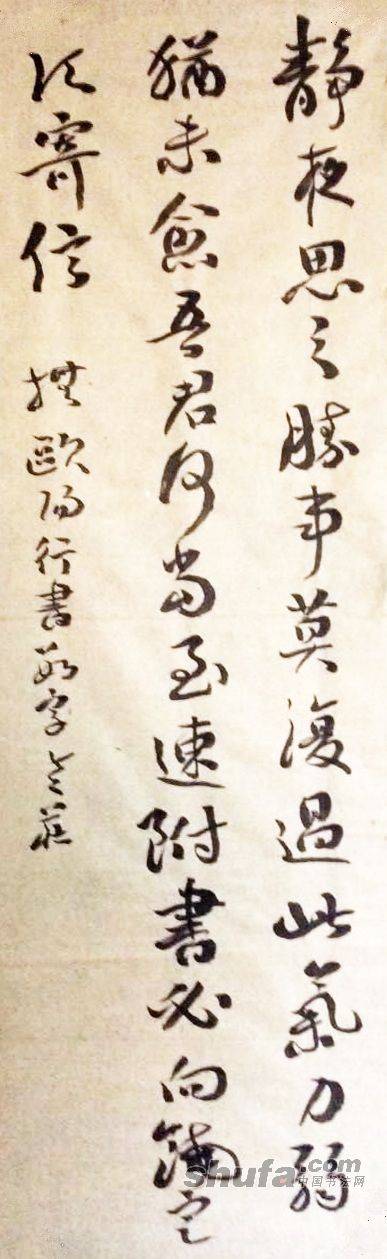 靜夜思之勝事莫復過此氣力弱
猶未愈吾君何當至速附書必向饒定
次寄信
撫歐陽行書數字
shufa.com
中国书法网